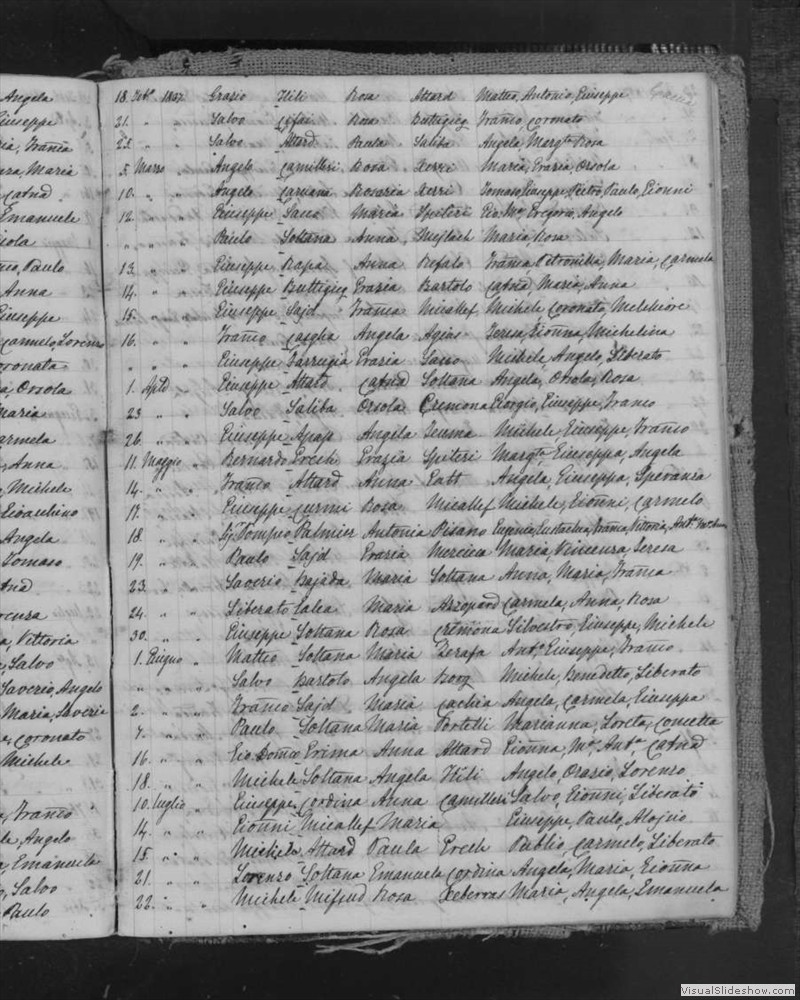 Angela
Giuseppe
Maria
Catnd
Emanuele
Paolo
Anna
Giuseppe
Carmelo, Lorenzo
Coronata
Orsola
Maria
Carmela
Anna
Michele
Gioachino
Angela
Tomaso
Vittoria
Salvo
Saverio, Angelo
Maria, Saveria
Coronato
Michele
Angelo
Emanuele
Salvo
Paolo
18. Febb. 1837 Grazio Xili Rosa Attard Matteo, Antonio, Giuseppe
21. " " Salvo Rosa Buttigieg Franco, Coronato
22. " " Salvo Attard Paula Saliba Angela, Margta Rosa
5. Marzo " Angelo Camilleri Rosa Xerri Maria, Grazia, Orsola
10. " " Angelo Caruana Rosaria Xerri Tomaso, Giuseppe, Pietro, Paulo, Gionni
12. " " Giuseppe Maria Spiteri Gio. Ma. Gregorio, Angelo
" " " Paulo Soltana Anna Maria, Rosa
13. " " Giuseppe Rapa Anna Refalo Franca, Petronilla, Maria, Carmela
14. " " Giuseppe Buttigieg Grazia Bartolo Catnd Maria, Anna
15. " " Giuseppe Sajd Franca Micallef Michele, Coronato, Melchiore
16. " " Franco Angela Agius Teresa, Gionna, Michelina
" " " Giuseppe Farrugia Grazia Michele, Angelo, Liberato
1. Aple " Giuseppe Attard Catnd Soltana Angela, Orsola, Rosa
23 " " Salvo Saliba Orsola Cremona Giorgio, Giuseppe, Franco
26. " " Giuseppe Apap Angela Michele, Giuseppe, Franco
11. Maggio " Bernardo Grech Grazia Spiteri Margta Giuseppa, Angela
14. " " Franco Attard Anna Gatt Angela, Giuseppa, Speranza
17. " " Giuseppe Curmi Rosa Micallef Michele, Gionni, Carmelo
18. " " Sg. Pompeo Palmier Antonia Pisano Eugenia, Franca, Vittoria,
19. " " Paulo Sajd Grazia Mercieca Maria, Vincenza, Teresa
23. " " Saverio Bajada Maria Soltana Anna, Maria, Franca
24. " " Liberato Calea Maria Azzopard Carmela, Anna, Rosa
30. " " Giuseppe Soltana Rosa Cremona Silvestro, Giuseppe, Michele
1. Giugno " Matteo Soltana Maria Zerafa Anto Giuseppe, Franco
" " " Salvo Bartolo Angela Borg Michele, Benedetto, Liberato
2. " " Franco Sajd Maria Cachia Angela, Carmela, Giuseppa
7. " " Paulo Soltana Maria Portelli Marianna, Loreta, Concetta
16. " " Gio Domco Grima Anna Attard Gionna, Ma. Anta. Catnd
18. " " Michele Soltana Angela Xili Angelo, Orazio, Lorenzo
10. Luglio " Giuseppe Cordina Anna Camilleri Salvo, Gionni, Liberato
14. " " Gionni Micallef Maria Giuseppe, Paulo, Alojsio
15. " " Michele Attard Paula Grech Publio, Carmelo, Liberato
21. " " Lorenzo Soltana Emanuela Cordina Angela, Maria, Gionna
22. " " Michele Mifsud Rosa Xeberras Maria, Angela, Emanuela
VisualSlideshow.com